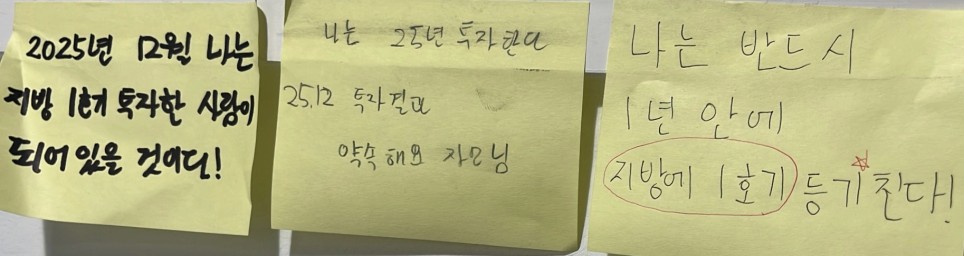 2025년 12월 나는
지방 1호기 투자한 사람이
되어 있을 것이다!
나는 25년 투자한다
25.12 투자결과
약속해요 자모님
나는 반드시
1년 안에
지방에 1호기 등기친다!